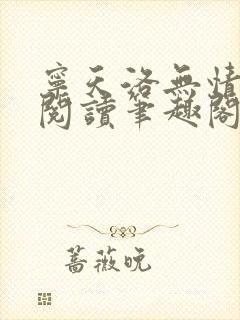 寧天洛無情
閱讀筆趣閣
薔薇晚